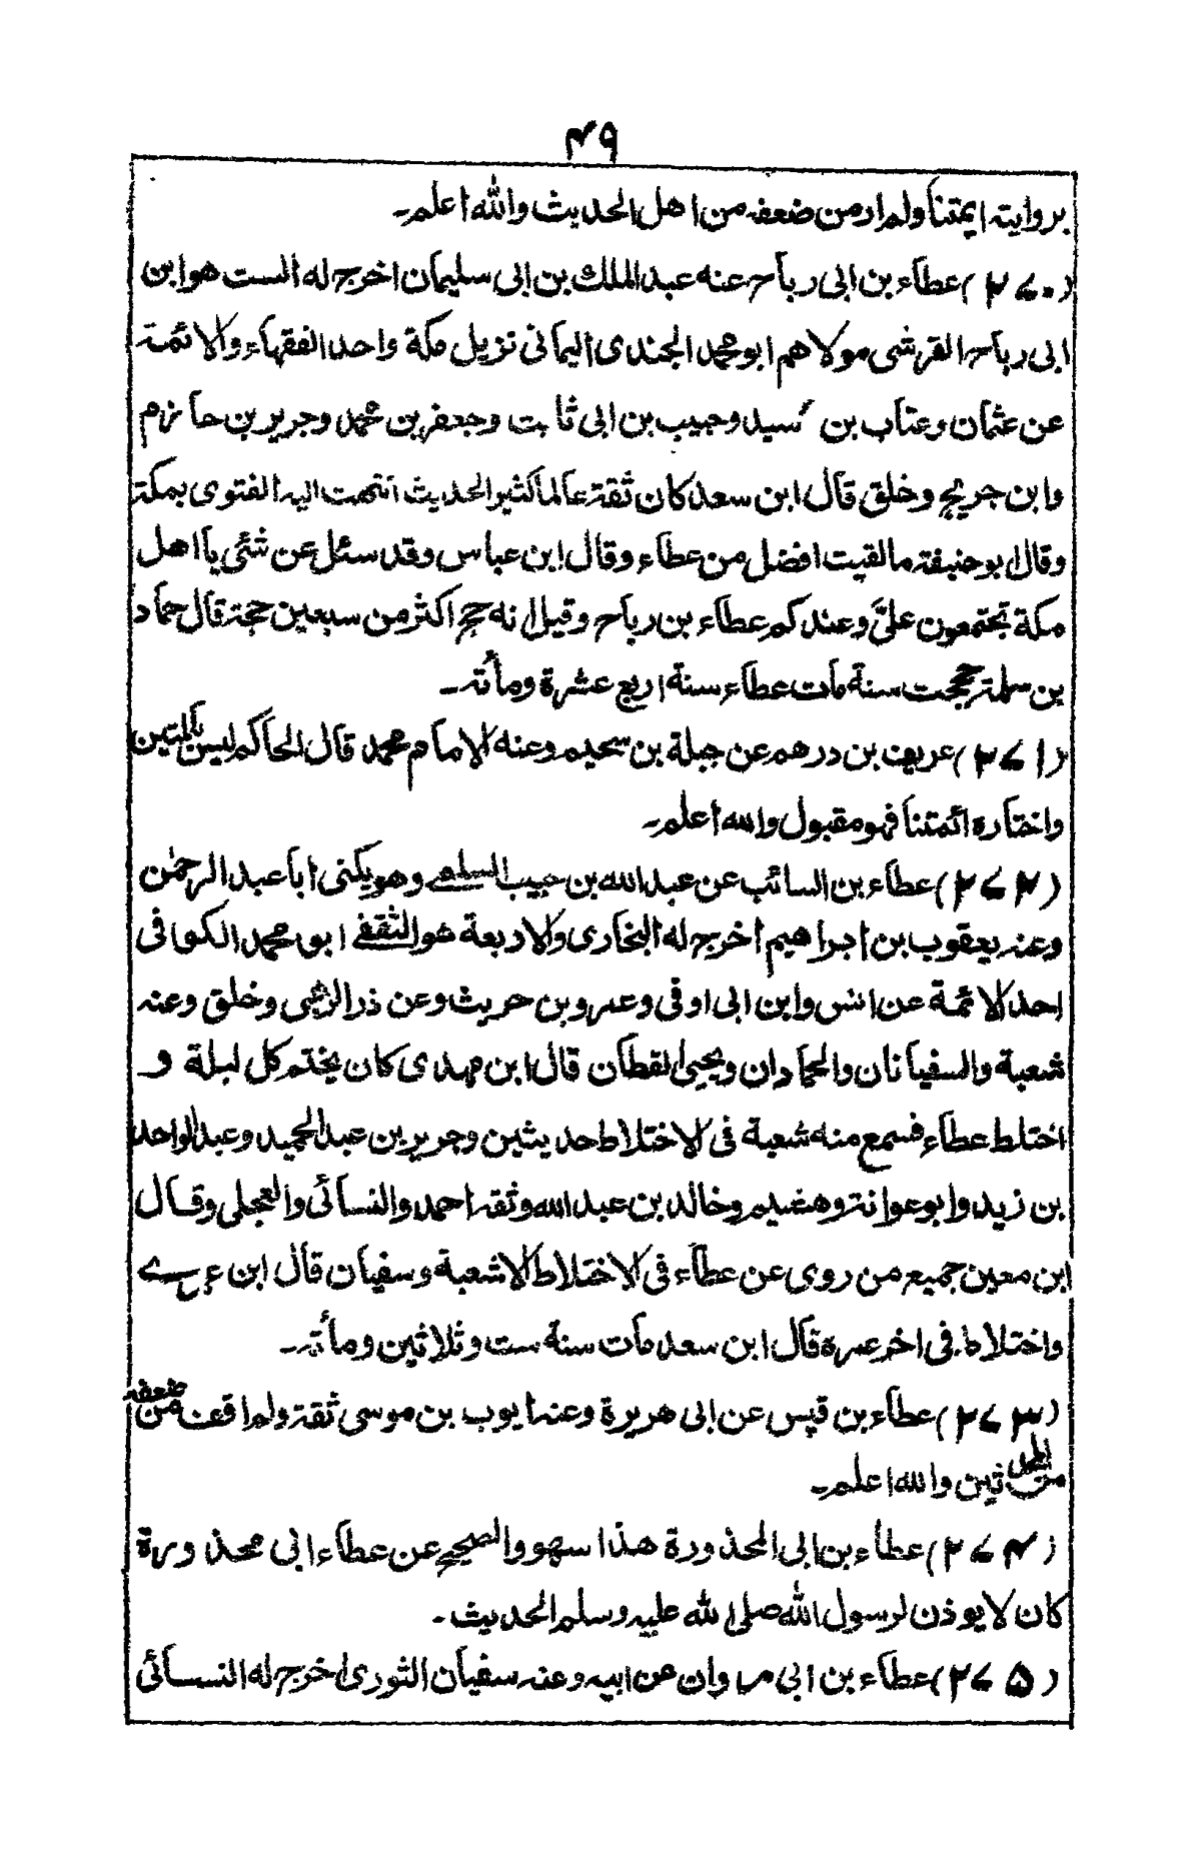 ۴۹
بروايته ايمتنا ولم ار من ضعفه من اهل الحديث والله اعلم۔
(۲۷۰) عطاء بن ابى رباح عنه عبد الملك بن ابى سليمان اخرج له الست هو ابن
ابى رباح القرشى مولاهم ابو محمد الجندى اليمانى نزيل مكة واحد الفقهاء والائمة
عن عثمان وعتاب بن سيد وحبيب بن ابى ثابت وجعفر بن محمد وجرير بن حازم
وابن جريج وخلق قال ابن سعد كان ثقة عالما كثير الحديث انتهت اليه الفتوى بمكة
وقال ابو حنيفة ما لقيت افضل من عطاء وقال ابن عباس وقد سئل عن شئى يا اهل
مكة تجتمعون علىَّ وعندكم عطاء بن رباح وقيل انه حج اكثر من سبعين حجة قال حماد
بن سلمة حججت سنة مات عطاء سنة اربع عشرة ومأته۔
(۲۷۱) عريف بن درهم عن جبلة بن سحيم وعنه الامام محمد قال الحاكم ليس بالمتين
واختاره ائمتنا فهو مقبول والله اعلم۔
(۲۷۲) عطاء بن السائب عن عبد الله بن حبيب السلمے وهو يكنى ابا عبد الرحمٰن
وعنه يعقوب بن ابراهيم اخرج له البخارى والاربعة هو الثقفے ابو محمد الكوفى
احد الائمة عن انس وابن ابى اوفى وعمرو بن حريث وعن ذر الرهبى وخلق وعنه
شعبة والسفيانان والحمادان ويحيى القطان قال ابن مهدى كان يختم كل ليلة و۔
اختلط عطاء فسمع منه شعبة فى الاختلاط حديثين وجرير بن عبد الحميد وعبد الواحد
بن زيد وابو عوانة وهشيم وخالد بن عبد الله وثقه احمد والنسائى والعجلى وقال
ابن معين جميع من روى عن عطاء فى الاختلاط الا شعبة وسفيان قال ابن
واختلاط فى اخر عمره قال ابن سعد مات سنة ست وثلاثين ومأته۔
(۲۷۳) عطاء بن قيس عن ابى هريرة وعنه ايوب بن موسى ثقة ولم اقف من ضعفه
من المحدثين والله اعلم۔
(۲۷۴) عطاء بن ابى المحذورة هذا سهو والصحيح عن عطاء ابى محذورة
كان لا يوذن لرسول الله صلى الله عليه وسلم الحديث۔
(۲۷۵) عطاء بن ابى مروان عن ابيه وعنه سفيان الثورى اخرج له النسائى